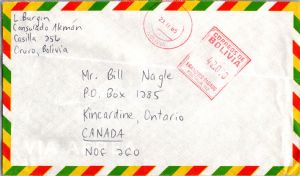 L. Burgin
Consulado Alemán
Casilla 256
Oruro, Bolivia
CORREOS DE
BOLIVIA
Mr. Bill Nagle
P.O. Box 1285
Kincardine, Ontario
CANADA
NOG 2GO